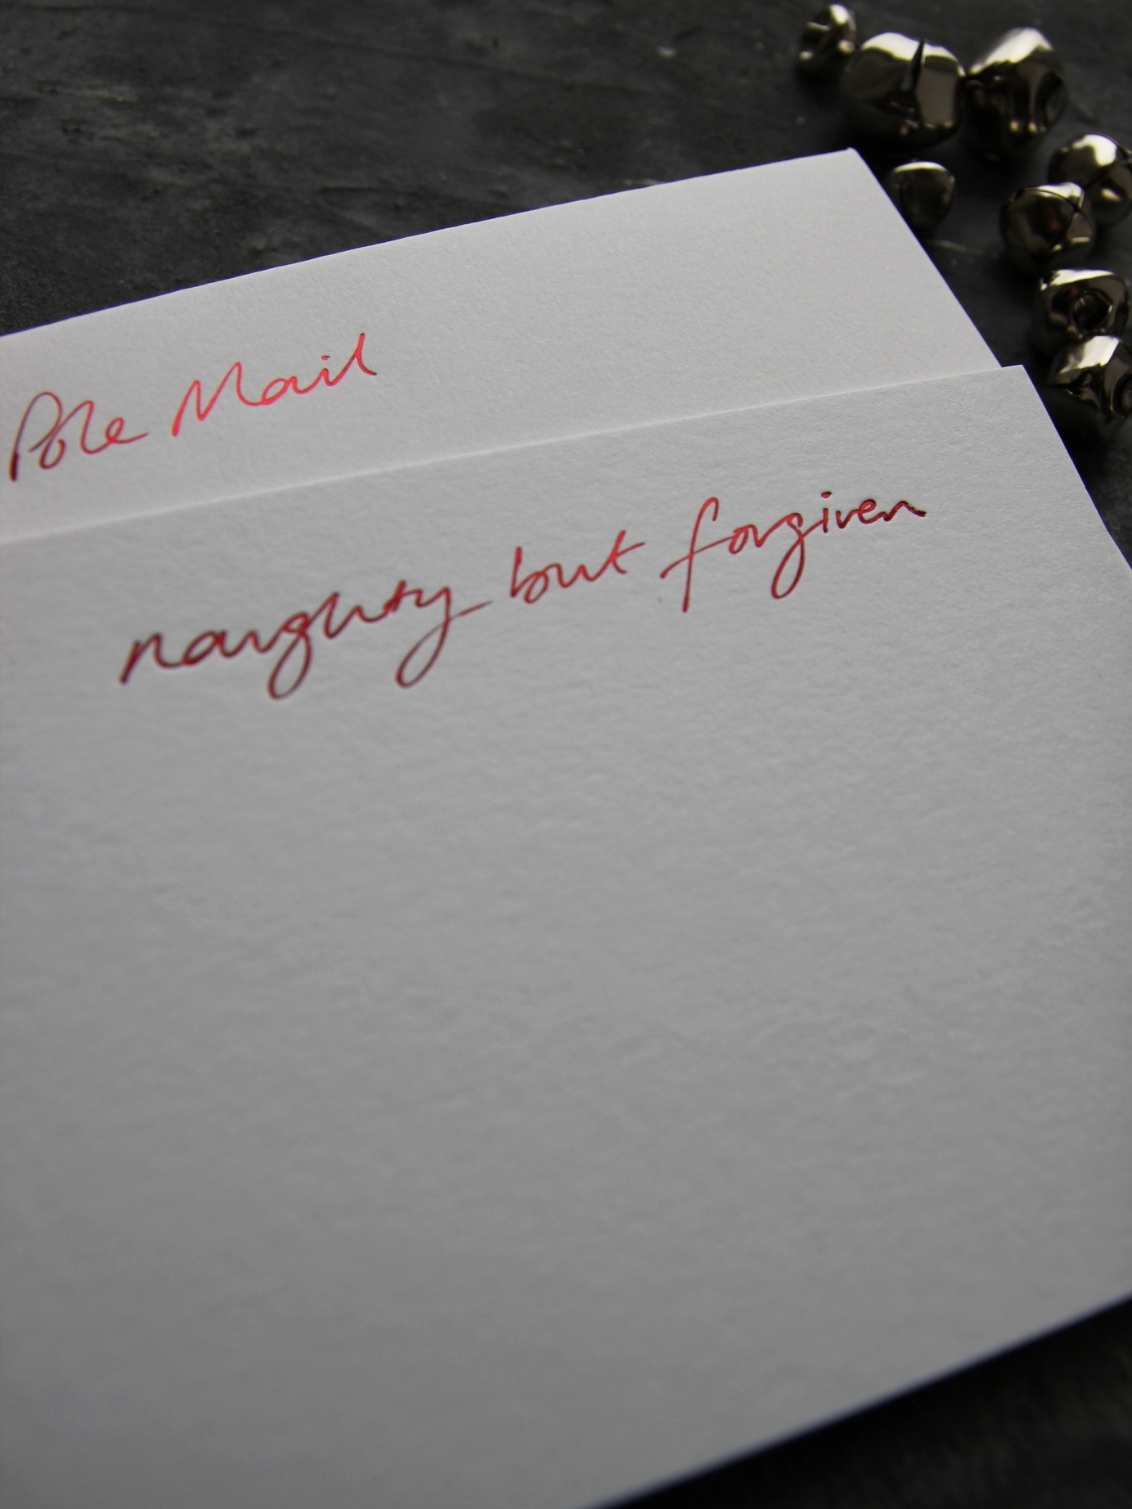 Pole Mail
naughty but forgiven